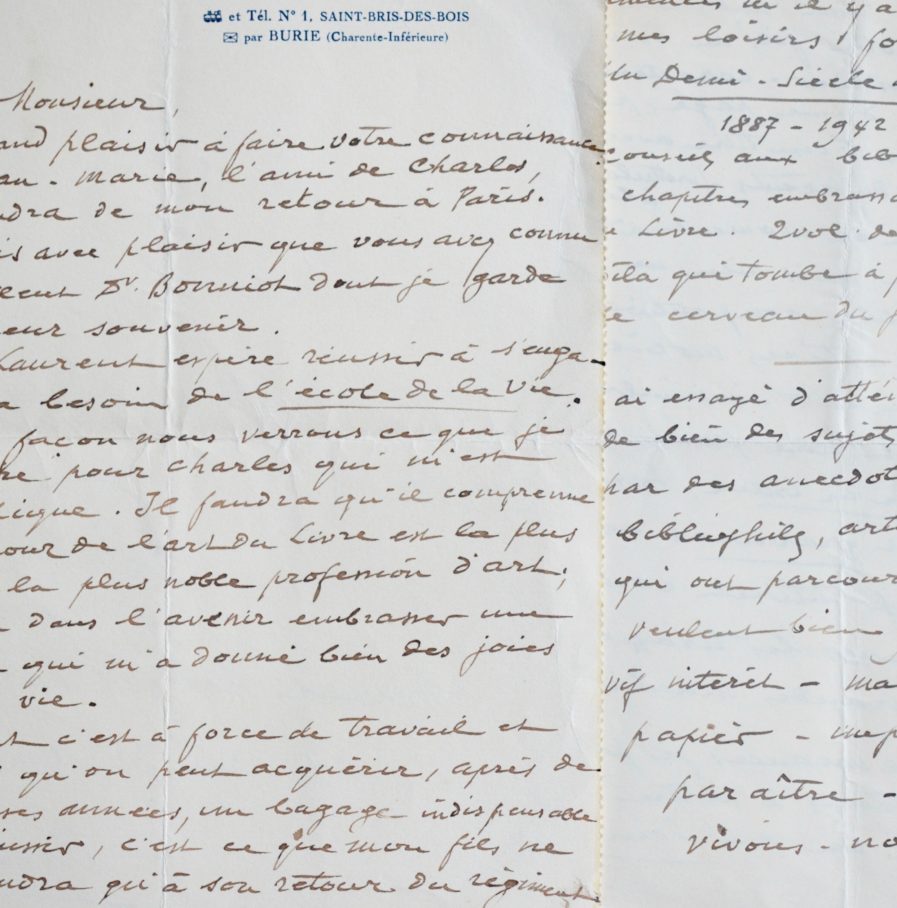 et Tél. N° 1, SAINT-BRIS-DES-BOIS
par BURIE (Charente-Inférieure)
Monsieur,
and plaisir à faire votre connaissance
an-Marie, l'ami de Charles,
ndra de mon retour à Paris.
is avec plaisir que vous avez connu
Dr. Bonniot dont je garde
eur souvenir.
Laurent espère réussir à s'enga-
a besoin de l'école de la Vie.
façon nous verrons ce que je
re pour Charles qui m'est
ique. Il faudra qu'il comprenne
our de l'art du Livre est la plus
la plus noble profession d'art,
dans l'avenir embrasser une
qui m'a donné bien des joies
vie.
t c'est à force de travail et
qu'on peut acquérir, après de
ses années, un bagage indispensable
ussir, c'est ce que mon fils ne
ndra qu'à son retour du régiment.
il y a
mes loisirs, fo
du Demi-Siècle
1887-1942
conseils aux bib
chapitres embrass
Livre. 2 vol. de
ilà qui tombe à p
e cerveau du
ai essayé d'atté
de bien des sujets
par des anecdot
bibliophiles, art
qui ont parcour
veulent bien
vif intérêt - ma
papier -
paraître -
vivons-no